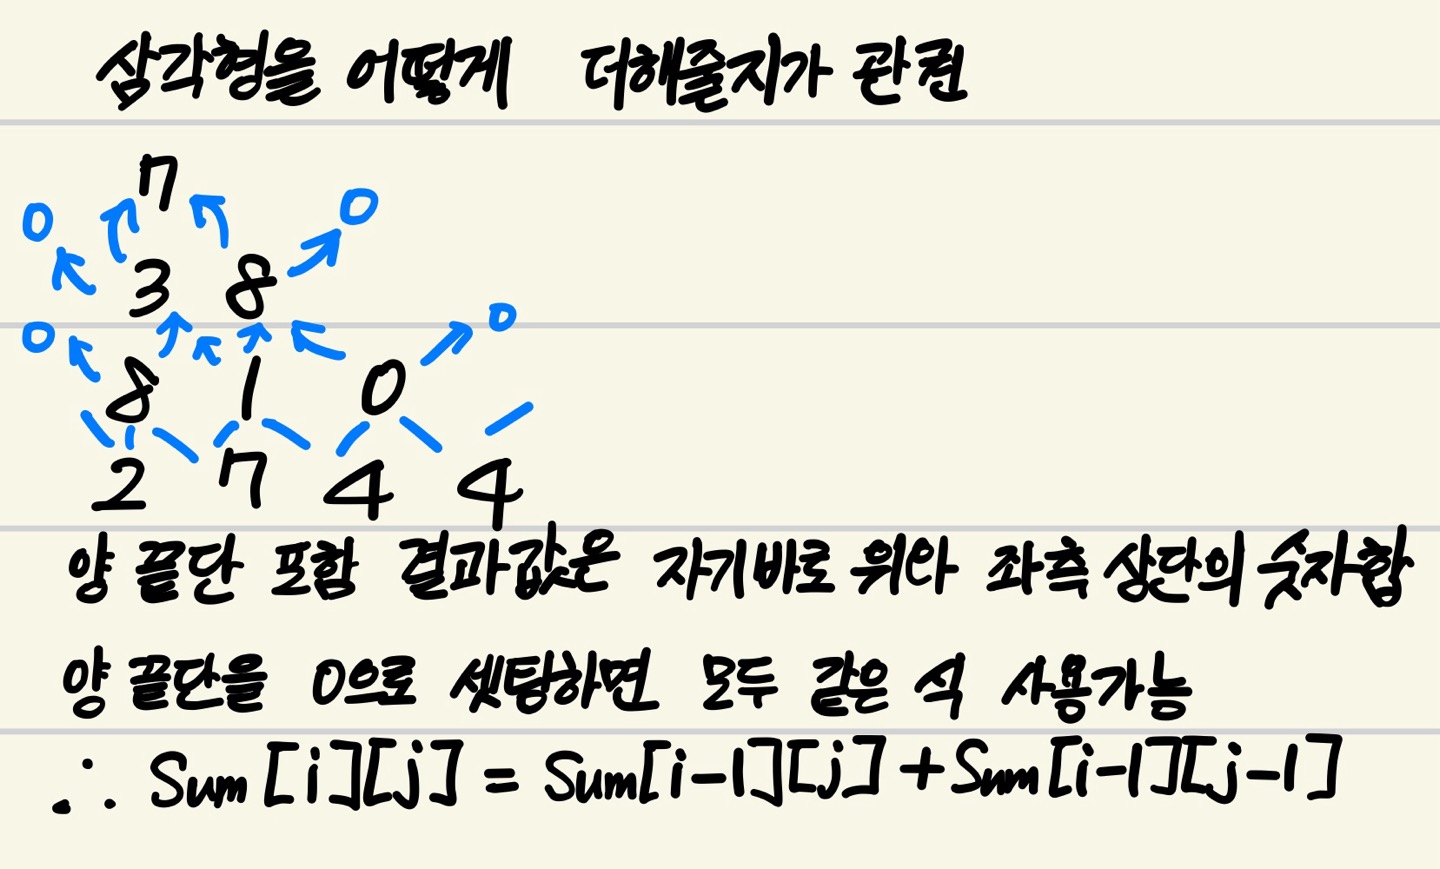 삼각형을 어떻게 더해줄지가 관권
7
0 0
3 8
0 0
8 1 0
2 7 4 4
양 끝단 포함 결과값은 자기바로 위와 좌측 상단의 숫자합
양 끝단을 0으로 셋팅하면 모두 같은 식 사용가능
∴ Sum[i][j] = Sum[i-1][j] + Sum[i-1][j-1]